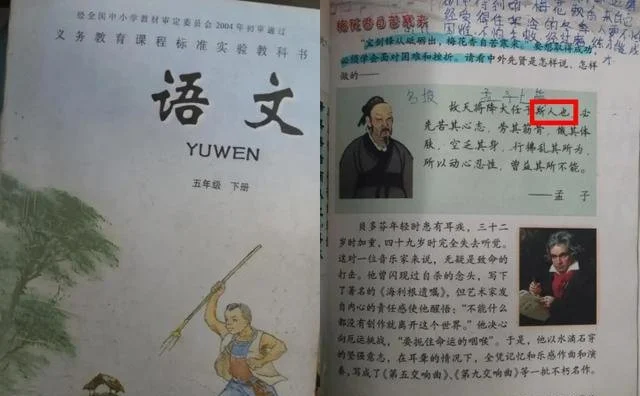 经全国中小学教材审定委员会2004年初审通过
义务教育课程标准实验教科书
语文
YUWEN
五年级 下册
梅花香自苦寒来
"宝剑锋从砥砺出，梅花香自苦寒来。"要想取得成功
必须学会面对困难和挫折。请看中外先贤是怎样说、怎样
做的——
故天将降大任于斯人也，必
先苦其心志，劳其筋骨，饿其体
肤，空乏其身，行拂乱其所为，
所以动心忍性，曾益其所不能。
——孟 子
贝多芬年轻时患有耳疾，三十二
岁时加重，四十九岁时完全失去听觉。
这对一位音乐家来说，无疑是致命的
打击。他曾闪现过自杀的念头，写下
了著名的《海利根遗嘱》。但艺术家发
自内心的责任感使他醒悟："不能什么
都没有创作就离开这个世界。"他决心
向厄运挑战，"要扼住命运的咽喉"。于是，他以水滴石穿
的坚强意志，在耳聋的情况下，全凭记忆和乐感作曲和演
奏，写成了《第五交响曲》、《第九交响曲》等一批不朽名作。